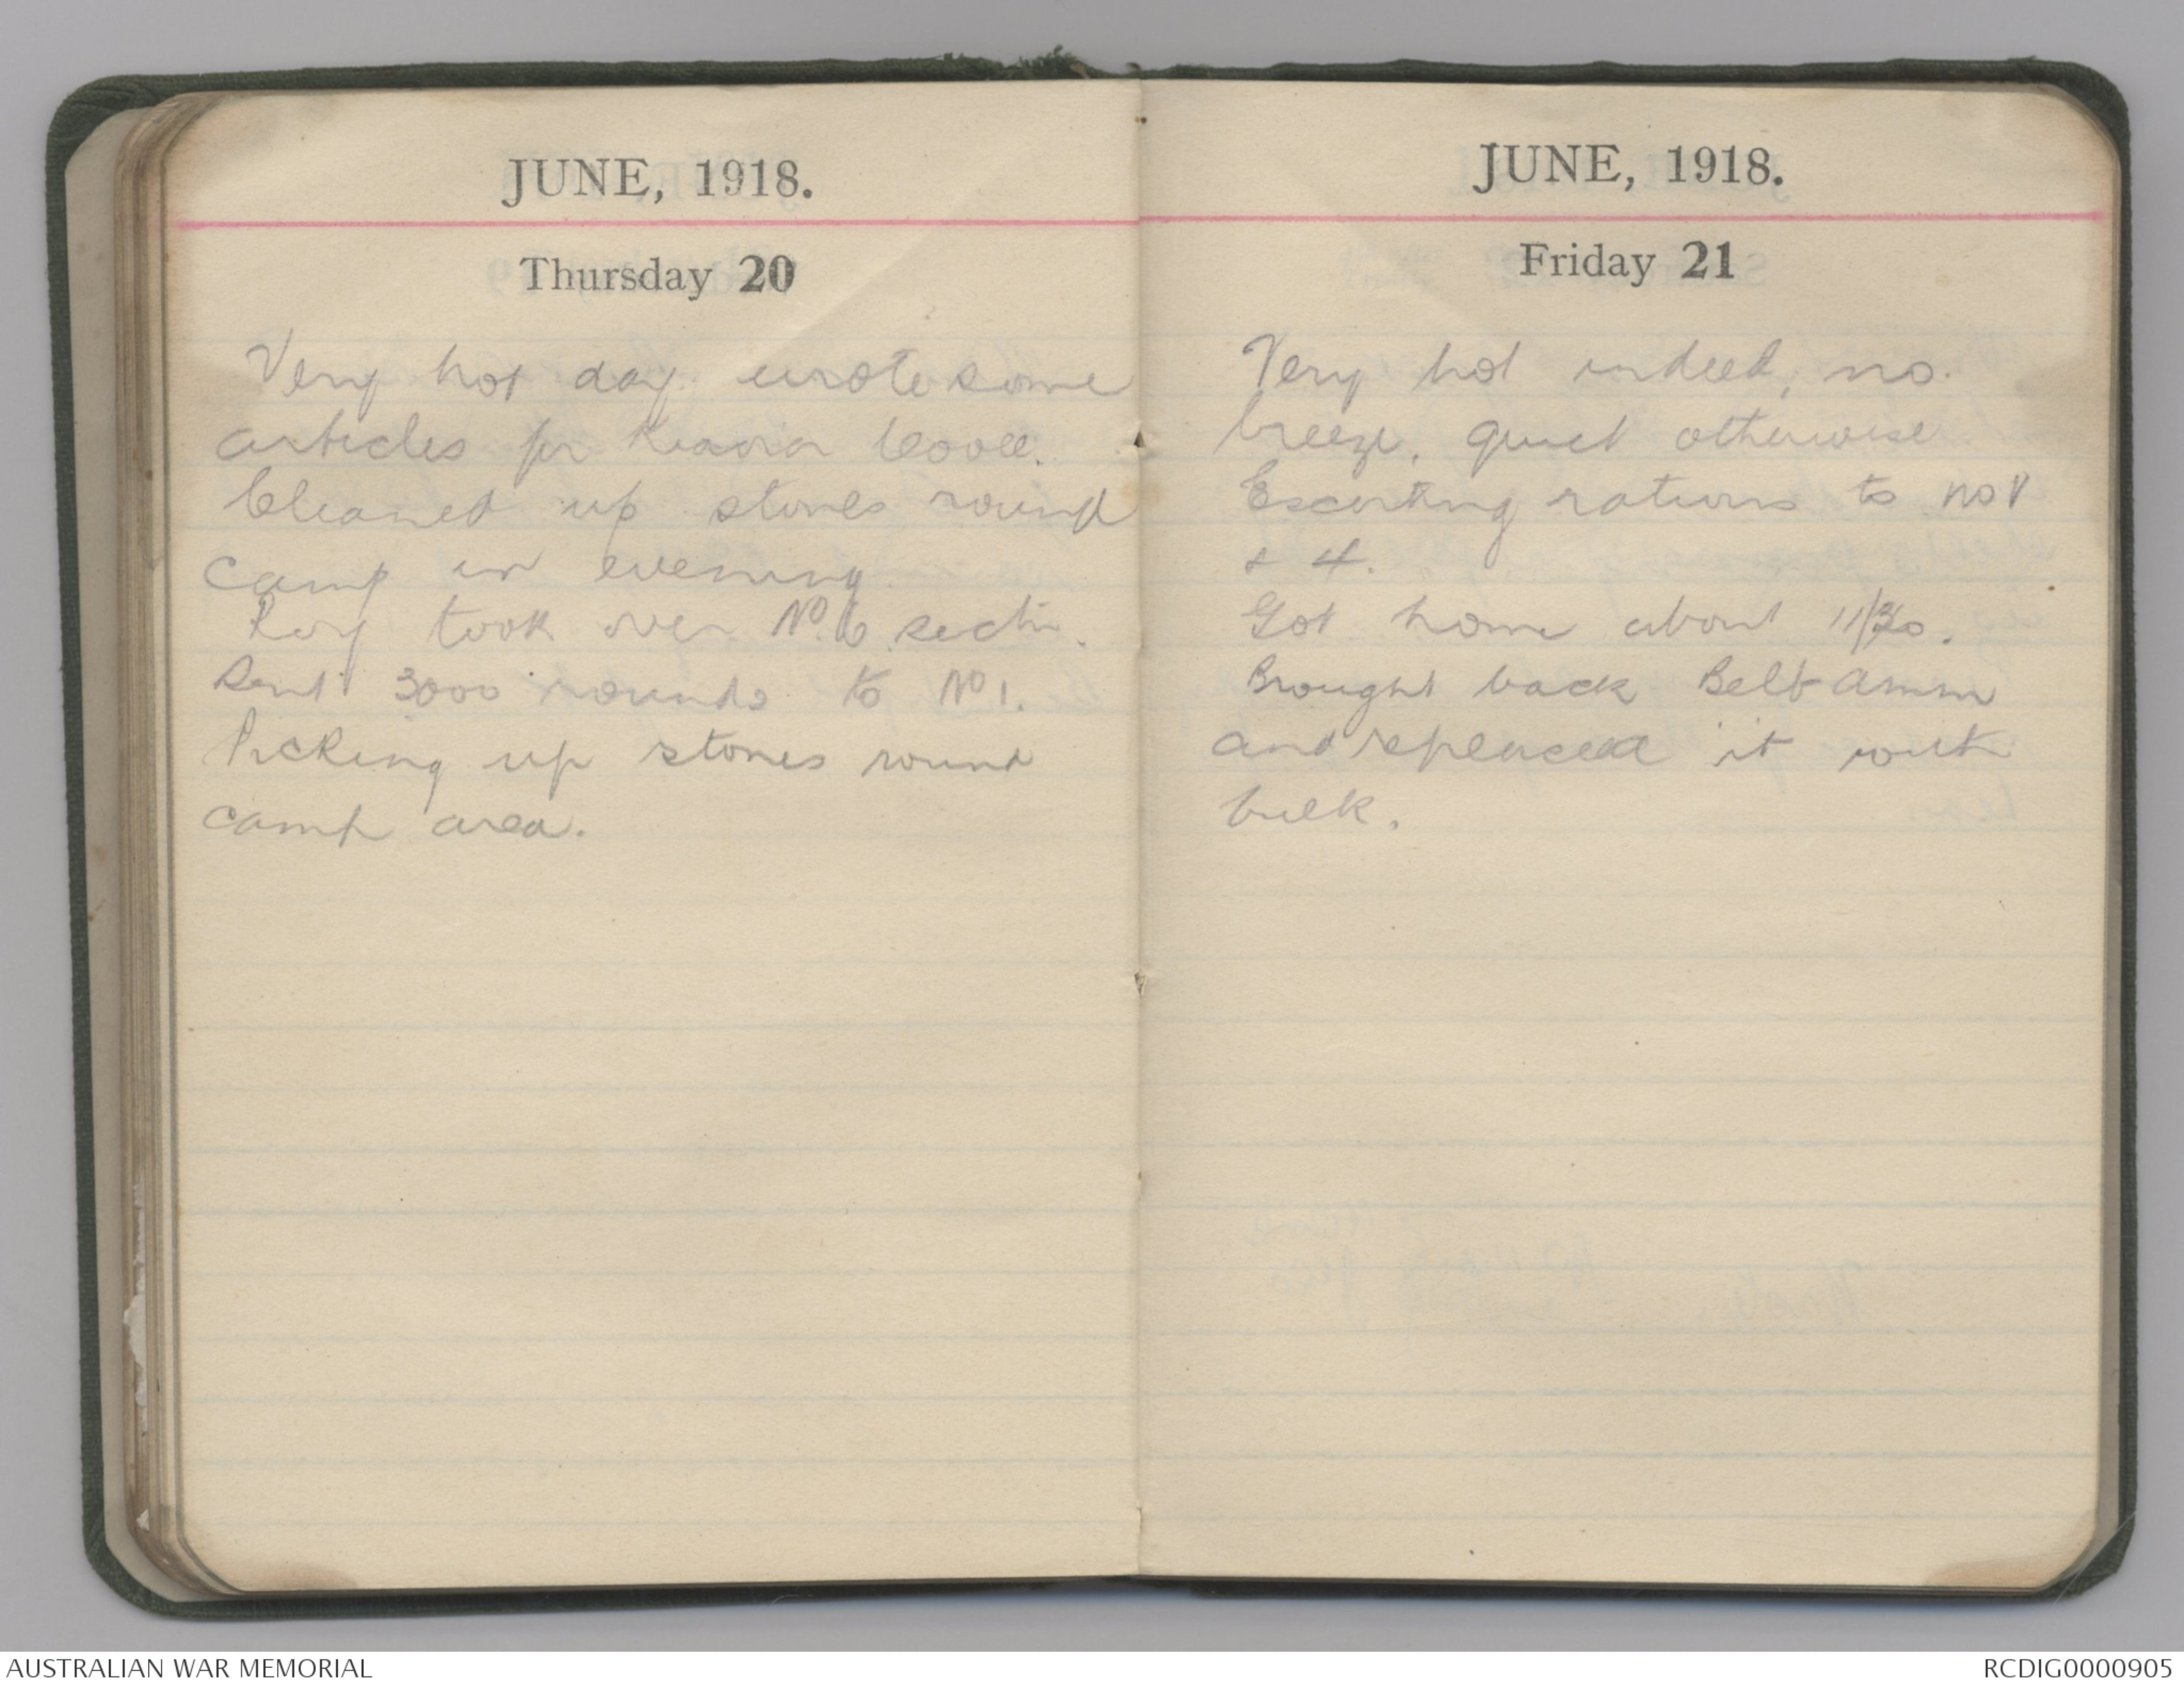 JUNE, 1918.
Thursday 20
Very hot day wrote some
articles for Kia ora Cooee.
Cleaned up stones round
camp in evening.
Roy took over No. 6 sectn.
Sent 3000 rounds to No 1.
Picking up stones round
camp area.
JUNE, 1918.
Friday 21
Very hot indeed, no.
breeze, quiet otherwise
Escorting rations to no 1
& 4.
Got home about 11/30.
Brought back Belt Amm
and replaced it with
bulk.
AUSTRALIAN WAR MEMORIAL
RCDIG0000905